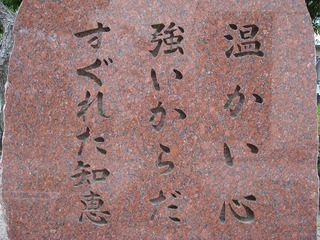 温かい心
強いからだ
すぐれた知恵